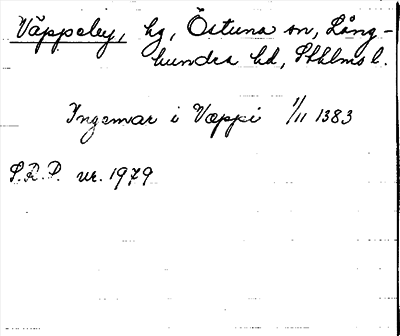 Väppeby, hg, Östuna sn, Lång-
hundra hd, Sthlms l.
Ingemar i Væppi 1/11 1383
S.R.P. nr. 1979